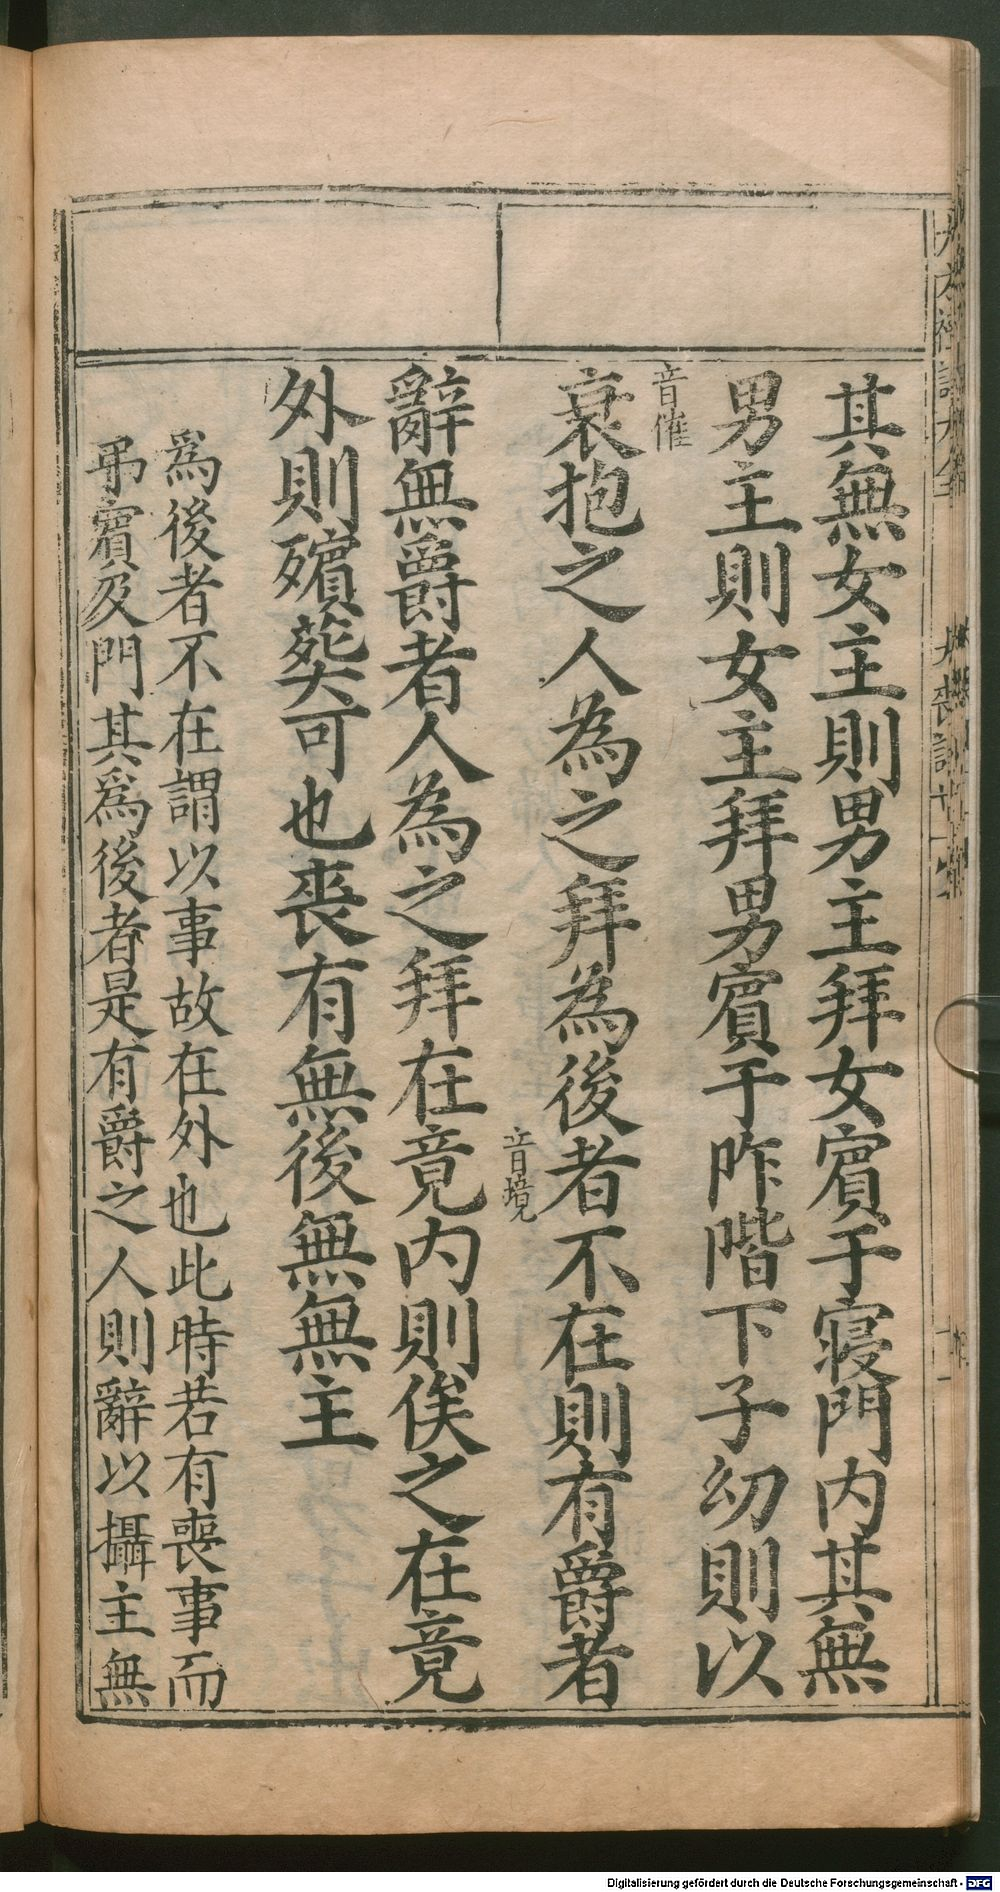 其無女主則男主拜女賓于寢門内其無
男主則女主拜男賓于阼階下子幼則以
音催
衰抱之人為之拜為後者不在則有爵者
音境
辭無爵者人為之拜在竟内則俟之在竟
外則殯葬可也喪有無後無無主
爲後者不在謂以事故在外也此時若有喪事而
弔賓及門其爲後者是有爵之人則辭以攝主無
Digitalisierung gefördert durch die Deutsche Forschungsgemeinschaft - DFG